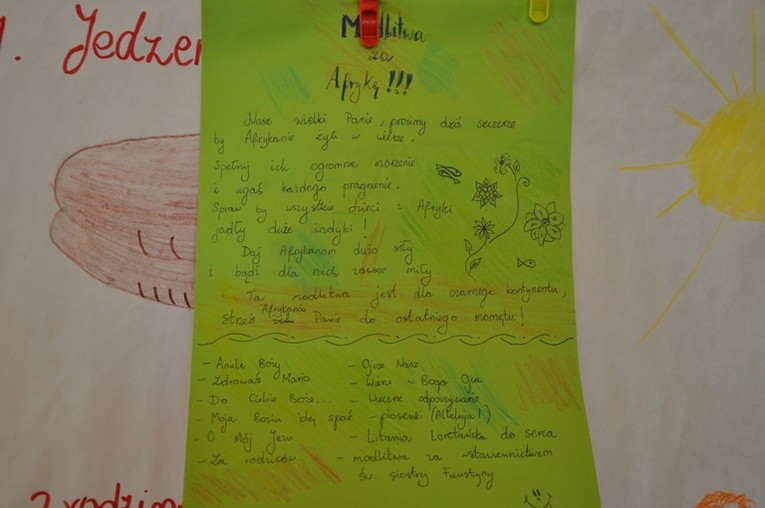 1. Jedzen
Modlitwa
za
Afrykę!!!
Nasz wielki Panie, prosimy dziś szczerze
by Afrykanie żyli w wierze.
Spełnij ich ogromne marzenie
i ugaś każdego pragnienie.
Spraw by wszystkie dzieci z Afryki
jadły duże indyki!
Daj Afrykanom dużo siły
i bądź dla nich zawsze miły.
Ta modlitwa jest dla czarnego kontynentu,
strzeż Afrykanów Panie do ostatniego momętu!
- Aniele Boży
- Zdrowaś Mario
- Do Ciebie Boże...
- Moja Boziu idę spać
- O Mój Jezu
- Za rodziców
- Ojcze Nasz
- Wierze w Boga Ojca
- Wieczne odpoczywanie
- piosenki (Alleluja!)
- Litania Loretańska do serca
- modlitwa za wstawiennictwem
św. siostry Faustyny
2 rodzin